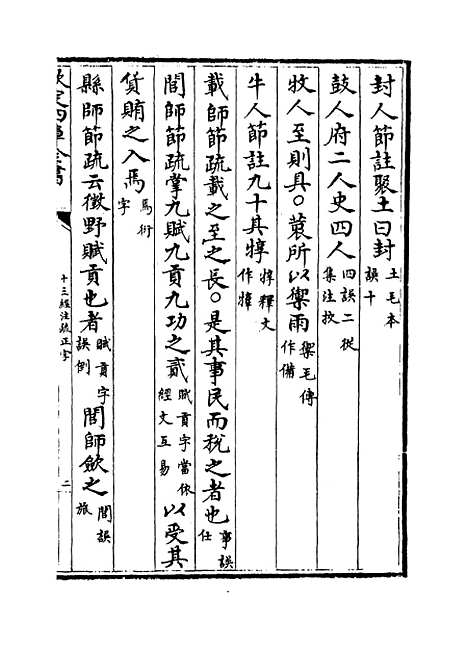 封人節註聚土曰封土毛本誤十
鼓人府二人史四人四誤二從集注挍
牧人至則具○蓑所以禦雨禦毛傳作備
牛人節註九十其犉犉釋文作㹊
載師節疏載之至之長○是其事民而稅之者也事誤任
閭師節疏掌九賦九貢九功之貳賦貢字當依經文互易以受其
貨賄之入焉焉衍字
縣師節疏云徵野賦貢也者賦貢字誤倒閭師斂之閭誤旅
欽定四庫全書
十三經注疏正字
二